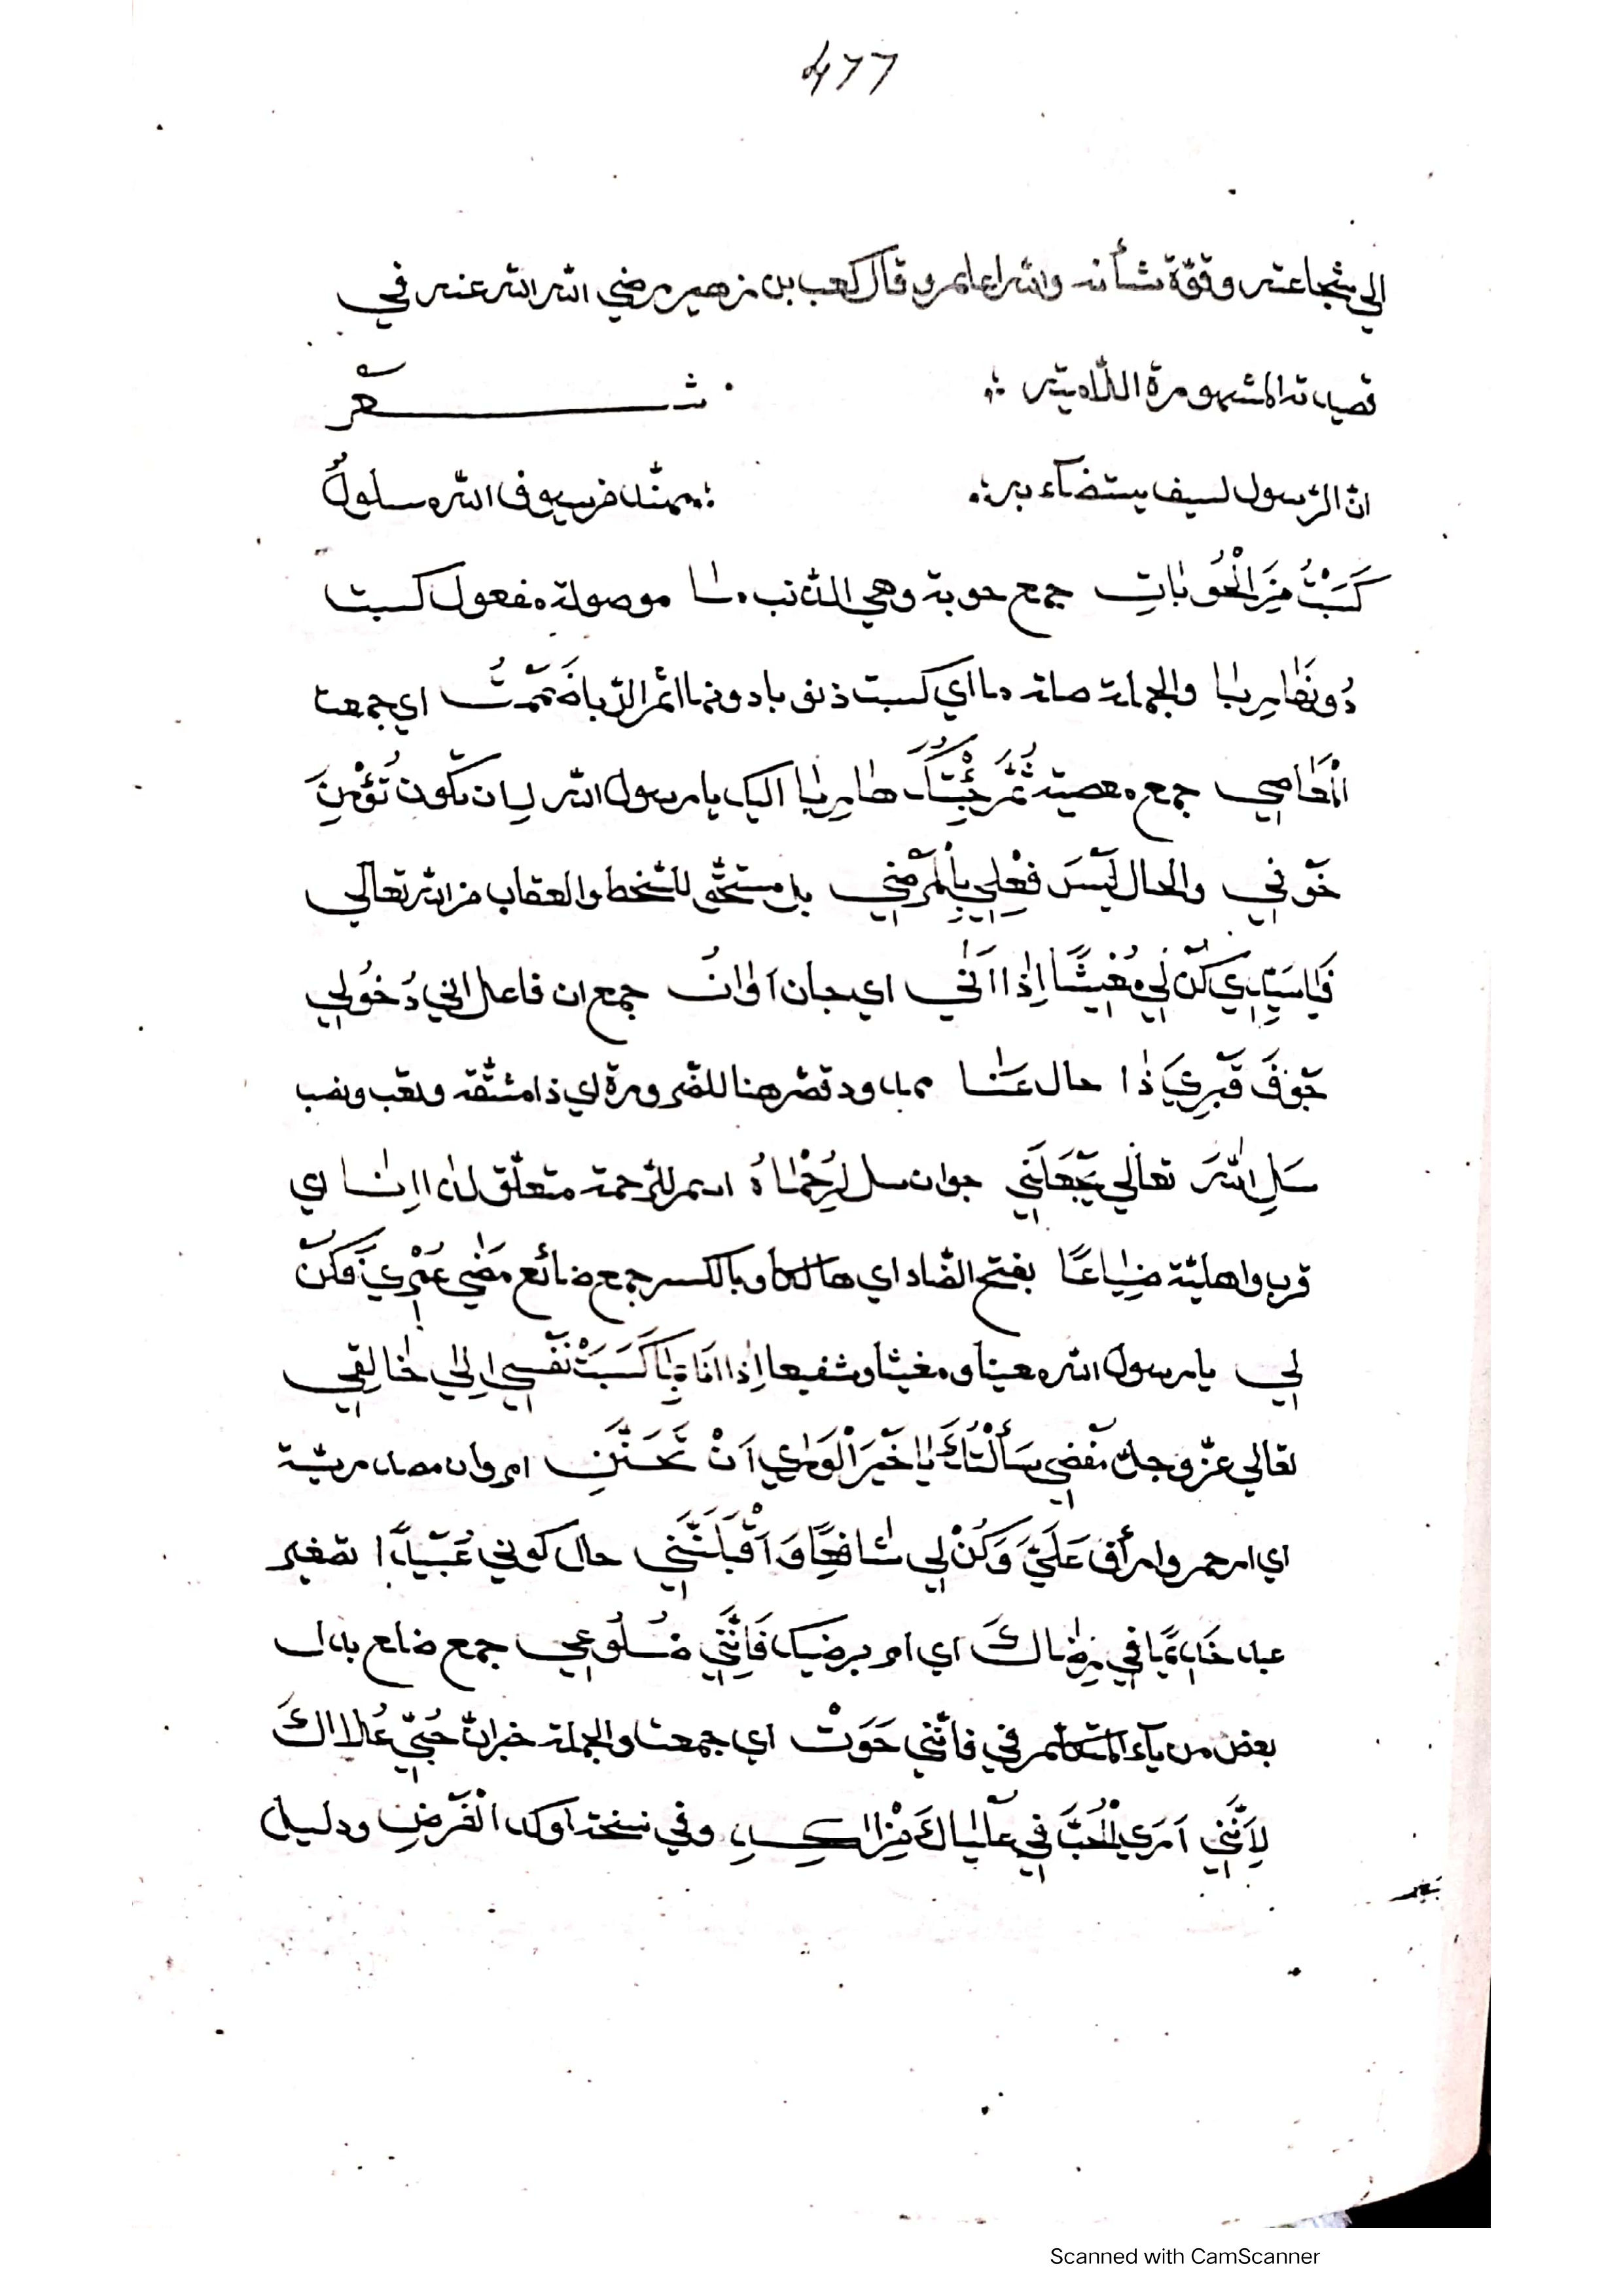 477
الي شجاعته وقوّة شأنه والله اعلم وقال كعب بن زهير رضي الله الله عنه في
قصيدته المشهورة اللّاميّة ؞ شعر
انّ الرّسول لسيف يستضآء به ؞ ؞ مهنّد من سيوف الله مسلولُ
كَسَبْتُ مِنَ الْحُوبَاتِ جمع حوبة وهي الذنب مَا موصولة مفعول كسبت
دُونَهَا رِبَا والجملة صلة ما اي كسبت ذنوبا دونها اثم الرّبا ضَمَّمْتُ اي جمعت
الْمَعَاصِي جمع معصية ثُمَّ جِئْتُكَ هَارِبَا اليك يا رسول الله لان تكون تُؤْمِنَ
خَوْفِي والحال لَيْسَ فِعْلِي بِالْمَرْضِي بل مستحّق للسّخط والعقاب من الله تعالي
فَيَا سَيِّدِي كُنْ لِي مُغِيثًا اِذَا اَتَي اي حان اَوَانُ جمع ان فاعل اتي دُخُولِي
جَوْفَ قَبْرِيَ ذَا حال عَنَا ممدود قصّر هنا للضّرورة اي ذا مشقّة وتعب ونصب
سَلِ اللهَ تعالي يَجْعَلَنِي جواب سل لِرُحْمَاهُ اسم للرّحمة متعلّق لدا اِنَا اي
قريبا واهليّة ضِيَاعًا بفتح الضّاد اي هالكا وبالكسر جمع ضائع مَضَي عُمْرِي فَكُنْ
لِي يا رسول الله معينا ومغيثا وشفيعا اِذَا اَنَا بِمَا كَسَبَتْ نَفْسِي اِلَي خَالِقِي
تعالي عزّ وجلّ مُفْضِي سَأَلْتُكَ يَا خَيْرَ الْوَرَي اَنْ تَحَنَّنَ او وان مصدريّة
اي ارحم وارأف عَلَيَّ وَكُنْ لِي شَافِعًا وَاقْبَلَنَّنِي حال كوني عُبَيْدًا تصغير
عبد خَدِيمًا فِي رِضَاكَ اي او برضيك فَاِنَّنِي ضُلُوعِي جمع ضلع بدل
بعض من يآء المتكلّم في فانّني حَوَتْ اي جمعت والجملة خبر انّ حُبِّي عُلَاكَ
لِاَنَّنِي اَرَي الْحُبَّ فِي عَلْيَاكَ مِنْ اكدِ وفي نسخة اوكد الْفَرْضِ ودليل